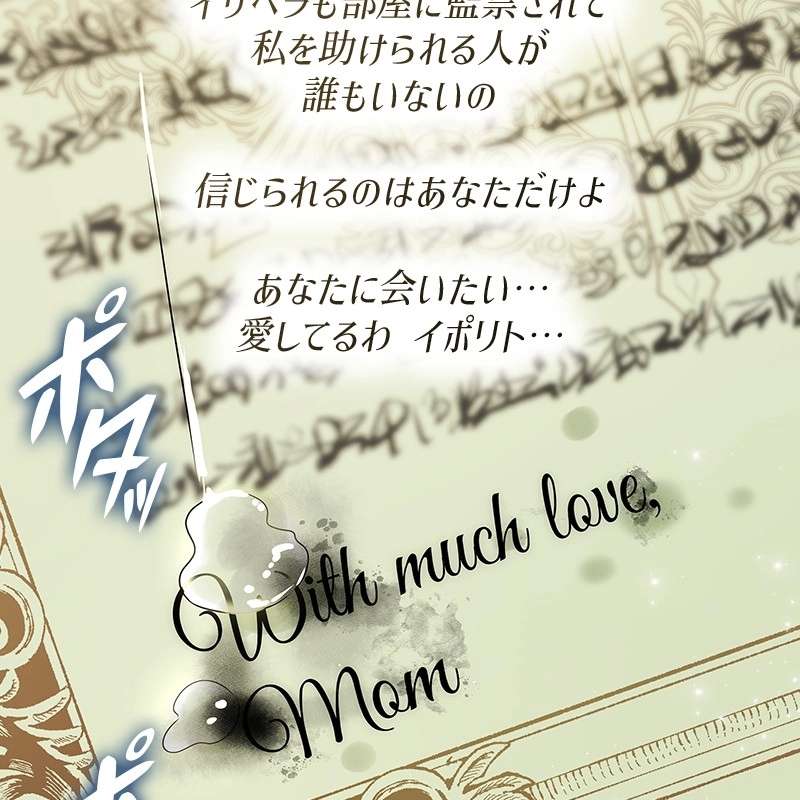 イリベラも部屋に監禁されて
私を助けられる人が
誰もいないの
信じられるのはあなただけよ
あなたに会いたい…
愛してるわ イポリト…
ポタッ
With much love,
Mom
ポ